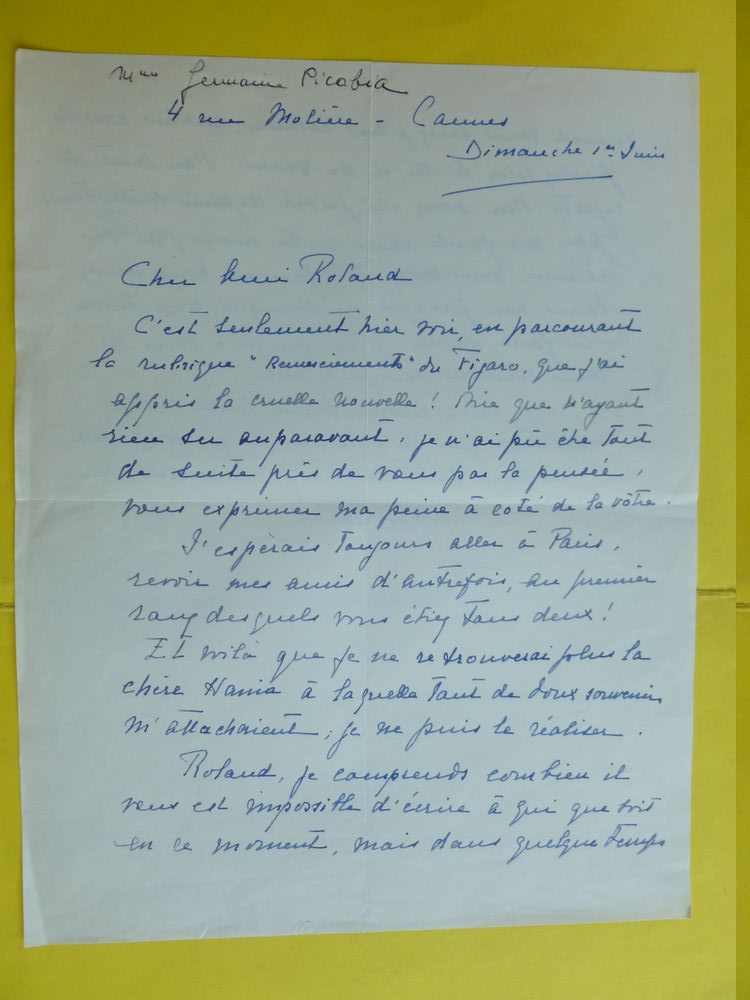 Mme Germaine Picabia
4 rue Molière - Cannes
Dimanche 1er Juin
Cher Ami Roland
C'est seulement hier soir, en parcourant
la rubrique "Remerciements" du Figaro, que j'ai
appris la cruelle nouvelle ! Dire que n'ayant
rien su auparavant, je n'ai pû être tout
de suite près de vous par la pensée,
vous exprimer ma peine à coté de la vôtre.
J'espérais toujours aller à Paris,
revoir mes amis d'autrefois, au premier
rang desquels vous étiez tous deux !
Et voilà que je ne retrouverai plus la
chère Hania à laquelle tant de doux souvenirs
m'attachaient ; je ne puis le réaliser.
Roland, je comprends combien il
vous est impossible d'écrire à qui que soit
en ce moment, mais dans quelque temps